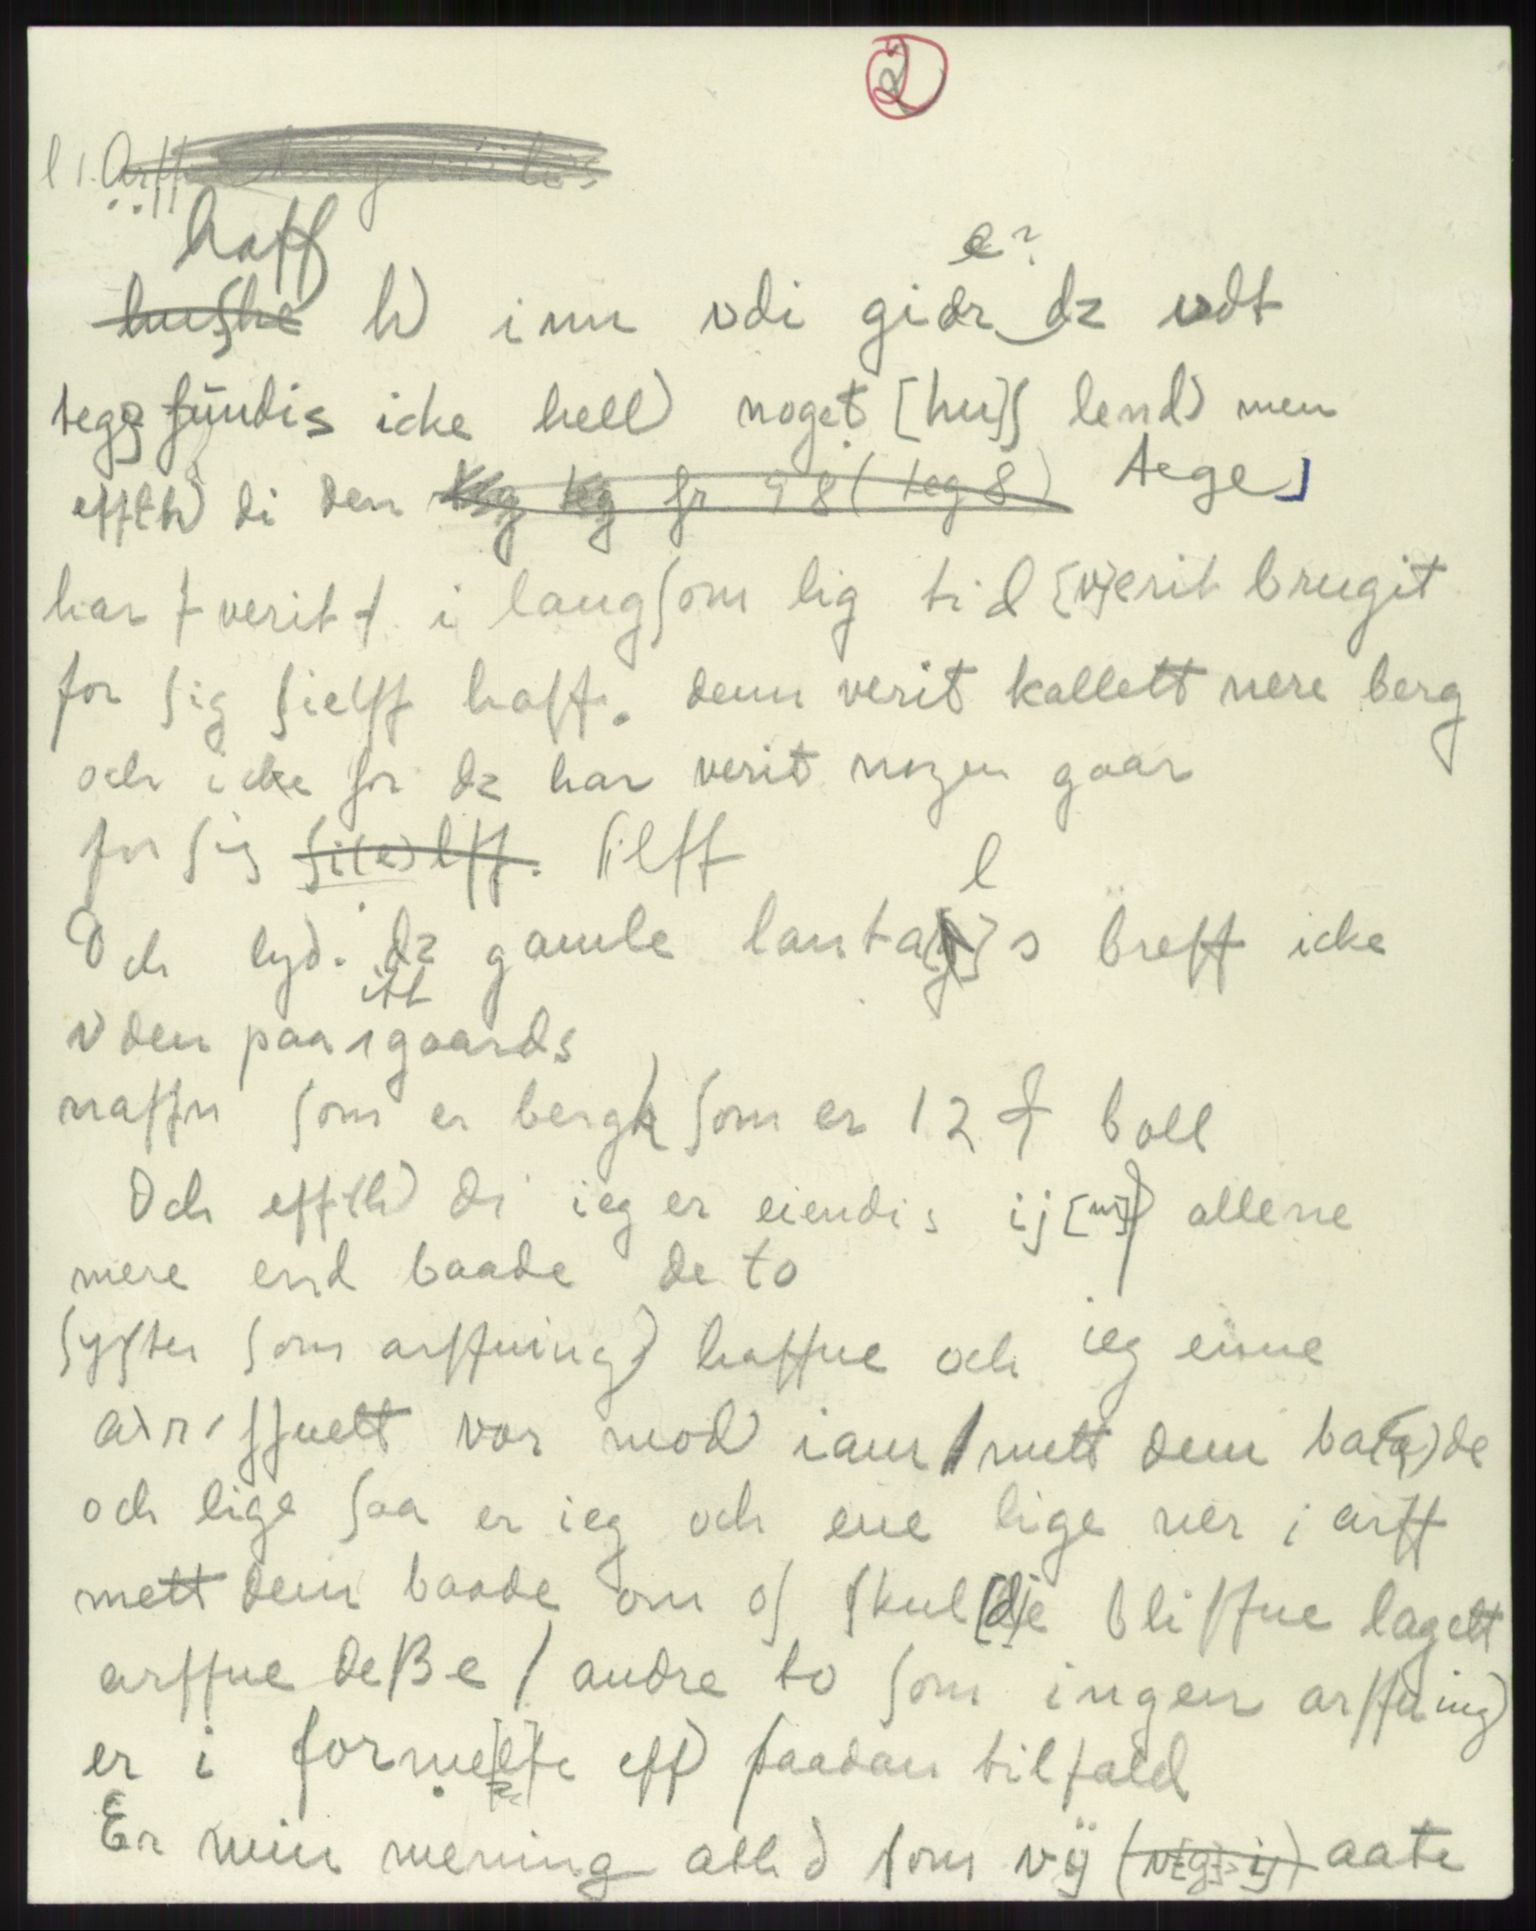 2
haff
e?
hushe h) inn vdi gidr dz vdt
tegz fundis icke hell) noget [hu]s lend) men
effth) di den teg teg fr 98 (teg 8) tege]
har + verit + i langsom lig tid [v]erit brugit
for sig sielff haff. denn verit kallett nere berg
och icke for dz har verit nogen gaar
for sig si(e)lff. silff
l
Och lyd. dz gamle lanta[g]s breff icke
itt
vden paa 1 gaards
naffn som er bergh som er 12 boll
Och effth) di ieg er eiendis ij[m]) allene
mere end baade de to
syster som arffuing) haffue och ieg enne
arffuett vor mod) iam / mett dem ba(a)de
och lige saa er ieg och ene lige ner i arff
mett dem baade om os skul[d]e bliffue lagett
arffue deße / andre to som ingen arffuing)
er i forme[l]te eff) saadan tilfald
Er min mening att d som vÿ (v[g]ij) aate